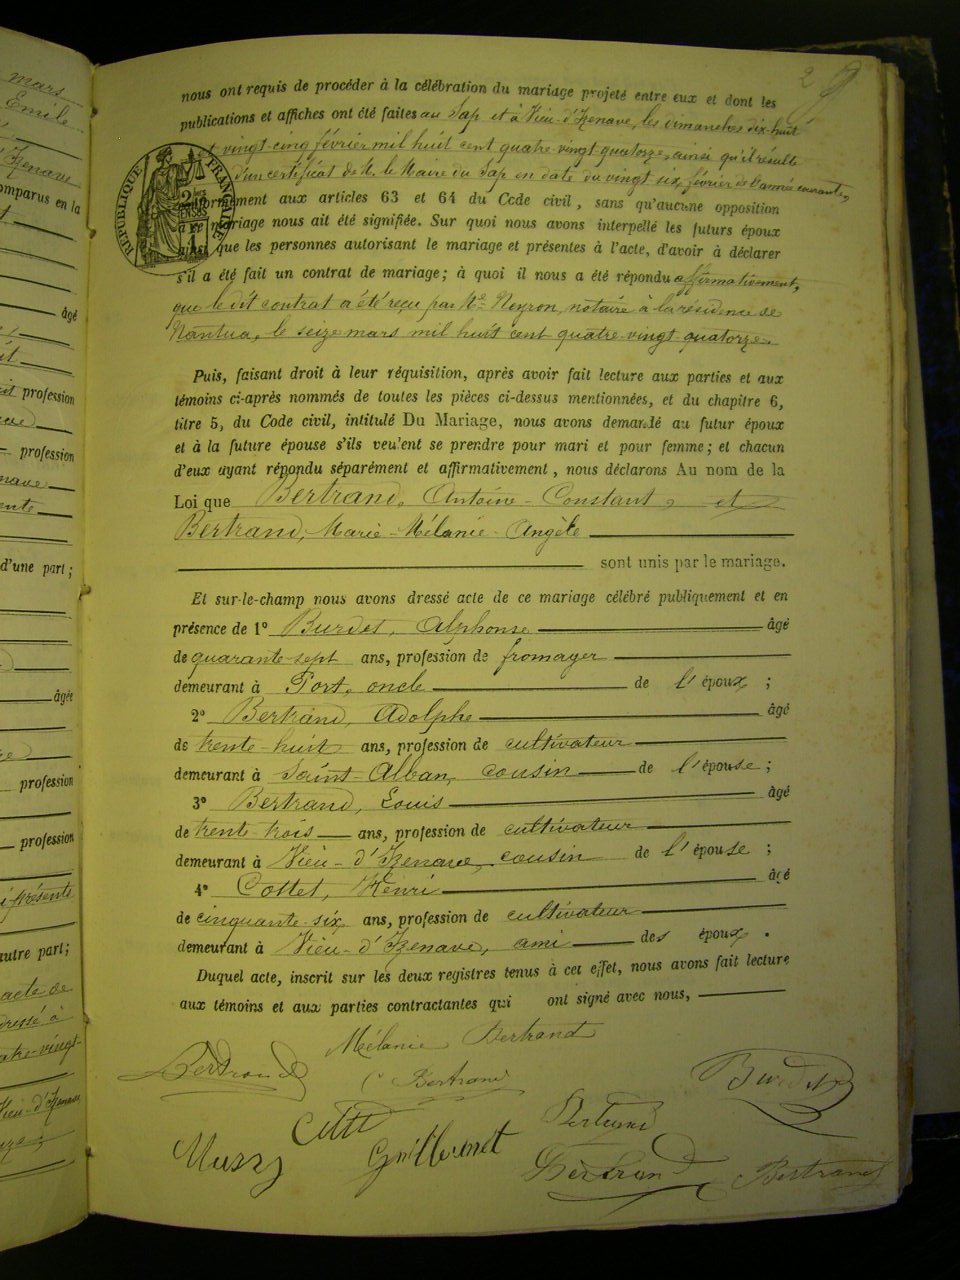 mars
Emile
d'Izenave
comparus en la
âgé
profession
profession
d'une part ;
âgée
profession
profession
présents
autre part;
acte de
dressé à
quatre-vingt-
Vieu-d'Izenave
2
nous ont requis de procéder à la célébration du mariage projeté entre eux et dont les
publications et affiches ont été faites au Sap et à Vieu-d'Izenave, les dimanches dix-huit
et vingt-cinq février mil huit cent quatre-vingt quatorze, ainsi qu'il résulte
d'un certificat de M. le Maire du Sap en date du vingt six février de l'année courante,
RÉPUBLIQUE FRANÇAISE
conformément aux articles 63 et 64 du Code civil, sans qu'aucune opposition
à ce mariage nous ait été signifiée. Sur quoi nous avons interpellé les futurs époux
ainsi que les personnes autorisant le mariage et présentes à l'acte, d'avoir à déclarer
s'il a été fait un contrat de mariage; à quoi il nous a été répondu affirmativement,
que le dit contrat a été reçu par Me Neyron, notaire à la résidence de
Nantua, le seize mars mil huit cent quatre-vingt quatorze.
Puis, faisant droit à leur réquisition, après avoir fait lecture aux parties et aux
témoins ci-après nommés de toutes les pièces ci-dessus mentionnées, et du chapitre 6,
titre 5, du Code civil, intitulé Du Mariage, nous avons demandé au futur époux
et à la future épouse s'ils veulent se prendre pour mari et pour femme; et chacun
d'eux ayant répondu séparément et affirmativement, nous déclarons Au nom de la
Loi que Bertrand, Antoine-Constant, et
Bertrand, Marie-Mélanie-Angèle
sont unis par le mariage.
Et sur-le-champ nous avons dressé acte de ce mariage célébré publiquement et en
présence de 1º Burdet, Alphonse âgé
de quarante-sept ans, profession de fromager
demeurant à Port, oncle de l'époux ;
2º Bertrand, Adolphe âgé
de trente-huit ans, profession de cultivateur
demeurant à Saint-Alban, cousin de l'épouse ;
3º Bertrand, Louis âgé
de trente-trois ans, profession de cultivateur
demeurant à Vieu-d'Izenave, cousin de l'épouse ;
4º Cottet, Henri âgé
de cinquante-six ans, profession de cultivateur
demeurant à Vieu-d'Izenave, ami des époux .
Duquel acte, inscrit sur les deux registres tenus à cet effet, nous avons fait lecture
aux témoins et aux parties contractantes qui ont signé avec nous,
Mélanie Bertrand
Bertrand C Bertrand Burdet
Bertrand
Mussy Guillermet Bertrand Bertrand